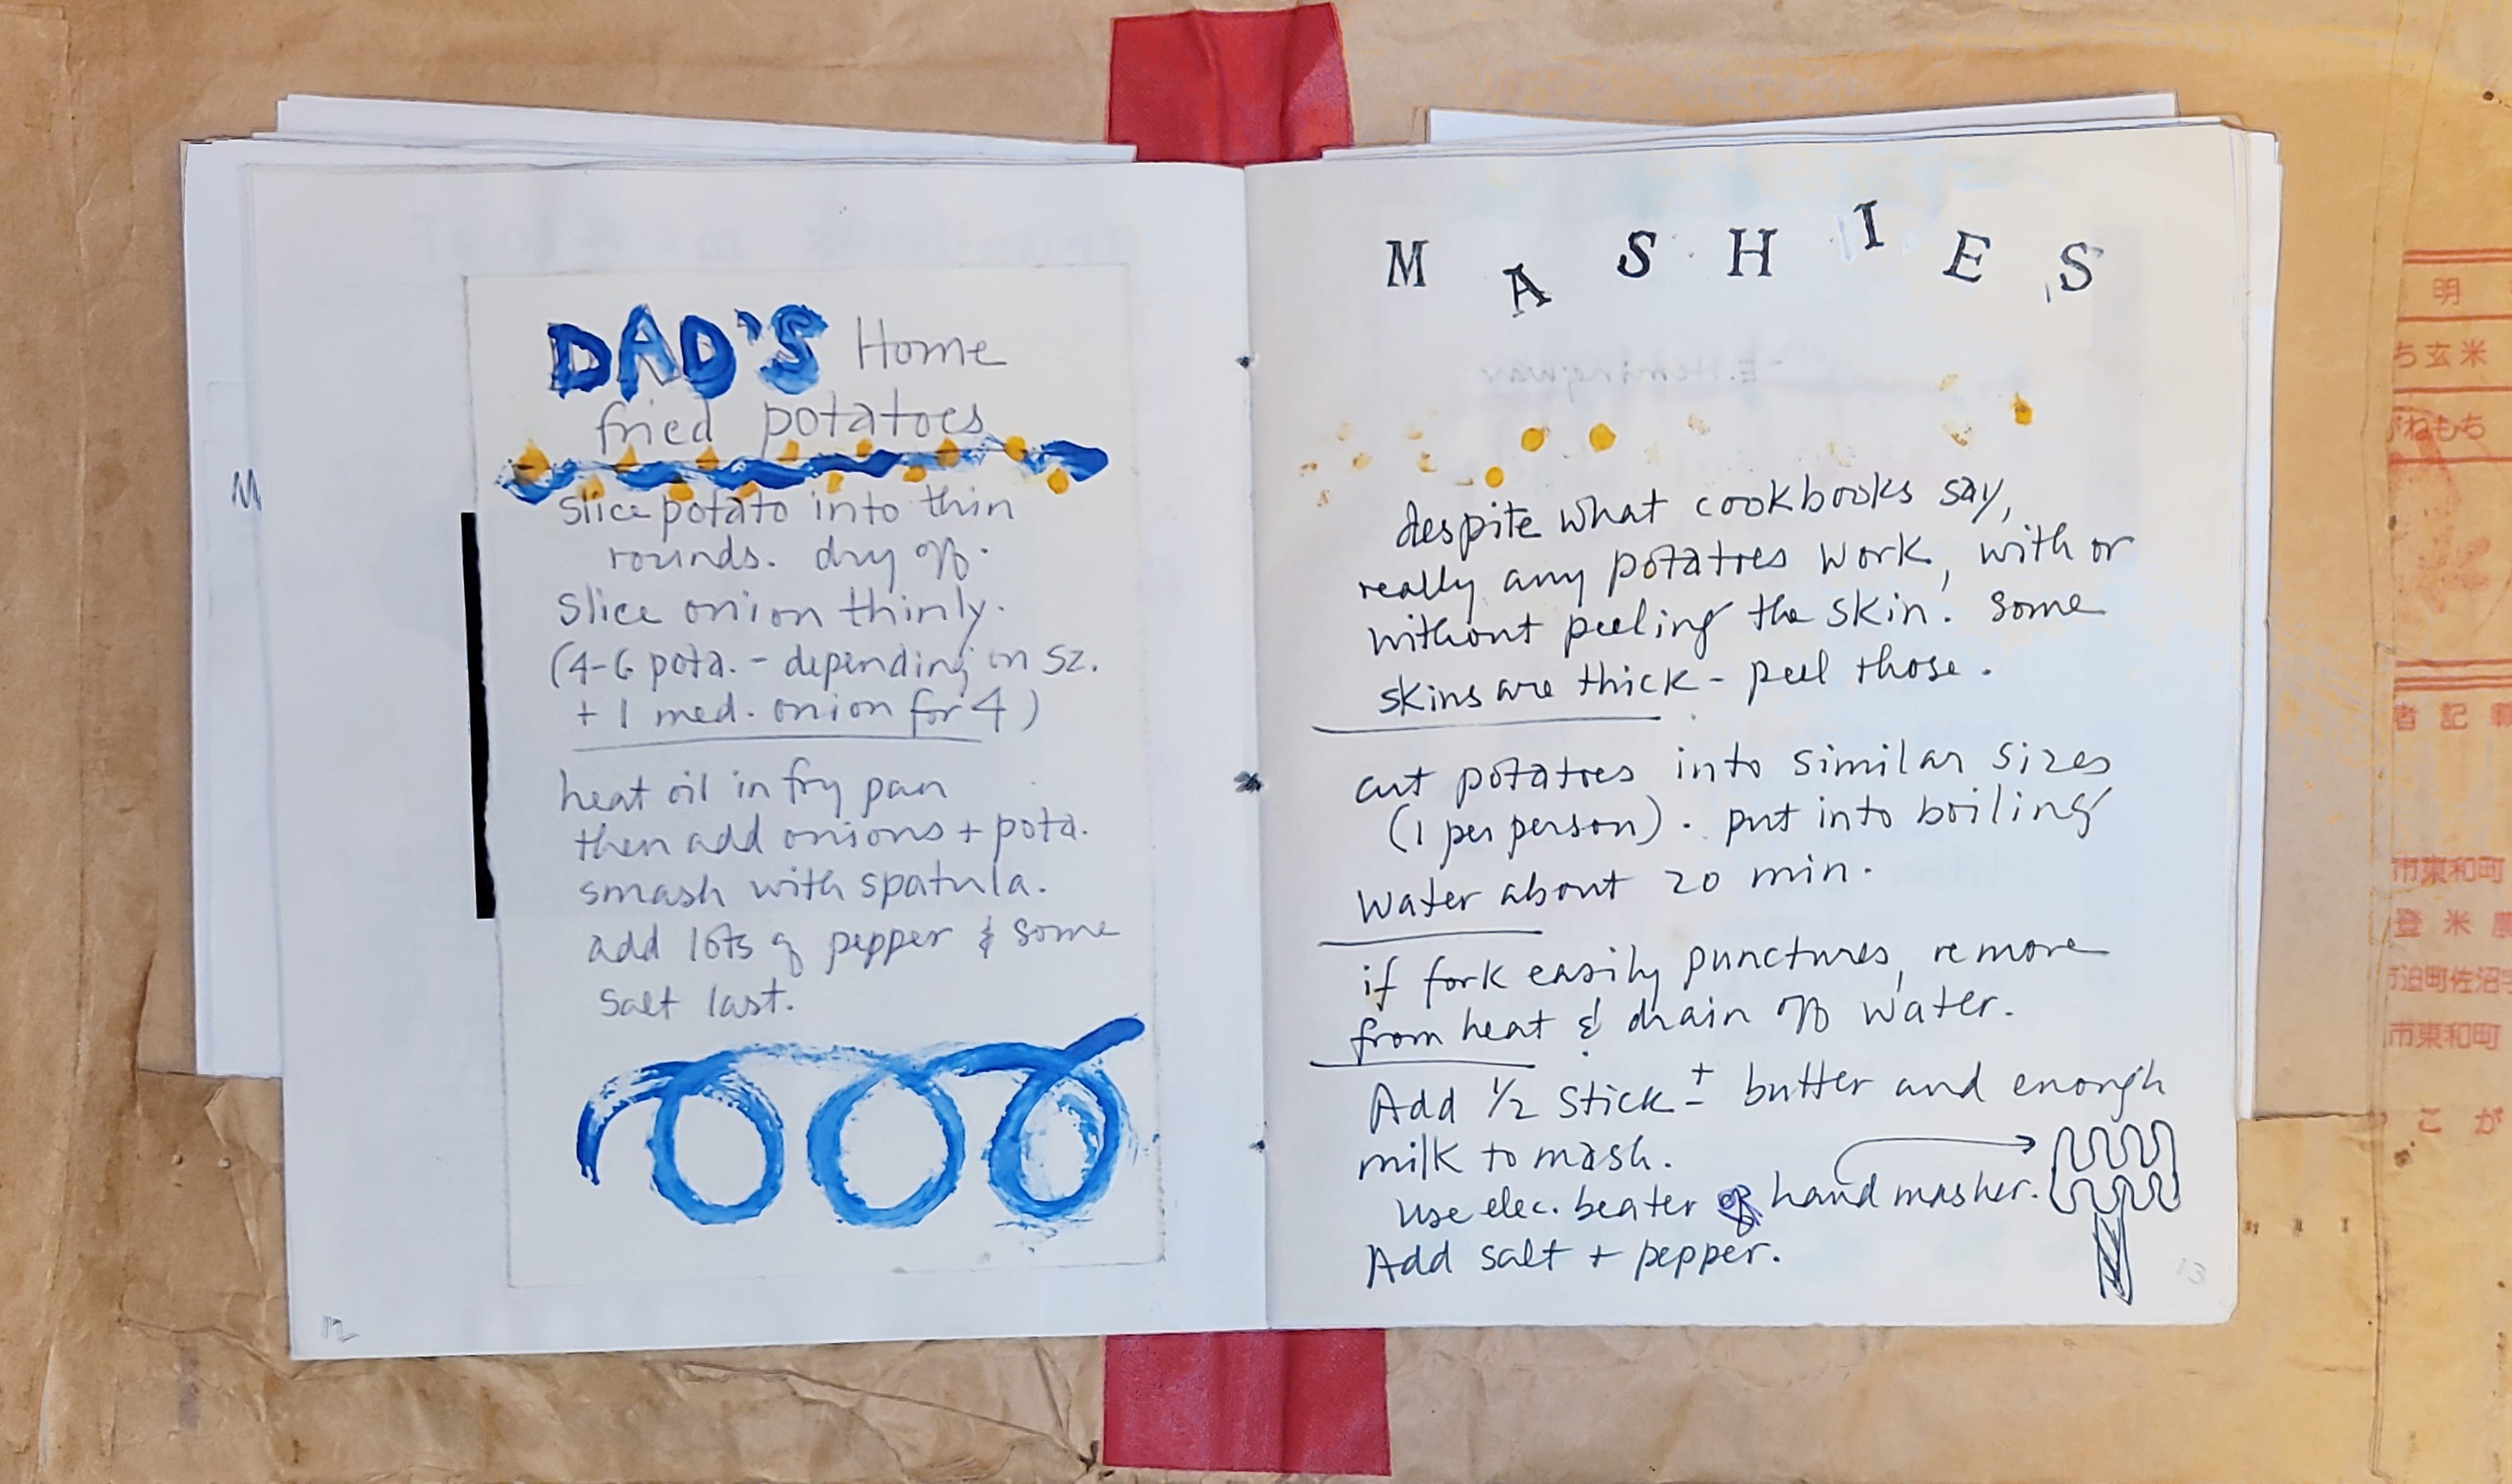 DAD'S Home
fried potatoes
slice potato into thin
rounds. dry off.
slice onion thinly.
(4-6 pota. - depending on sz.
+ 1 med. onion for 4)
heat oil in fry pan
then add onions + pota.
smash with spatula.
add lots of pepper & some
salt last.
12
MASHIES
despite what cookbooks say,
really any potatoes work, with or
without peeling the skin. some
skins are thick - peel those.
cut potatoes into similar sizes
(1 per person). put into boiling
water about 20 min.
if fork easily punctures, remove
from heat & drain off water.
Add 1/2 stick ± butter and enough
milk to mash.
use elec. beater or hand masher.
Add salt + pepper.
13
M
明
ち玄米
がねもち
者記載
市東和町
登米農
市迫町佐沼字
市東和町
こが